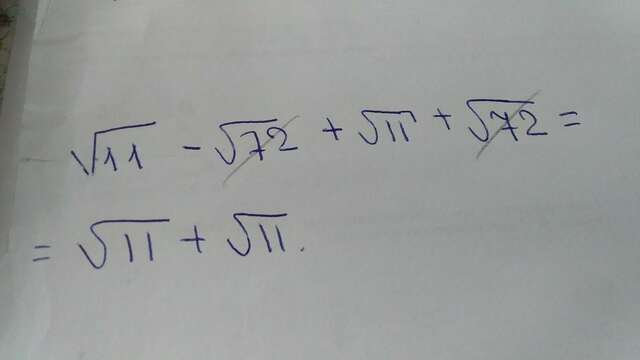 √11 - √72 + √11 + √72 =
= √11 + √11.